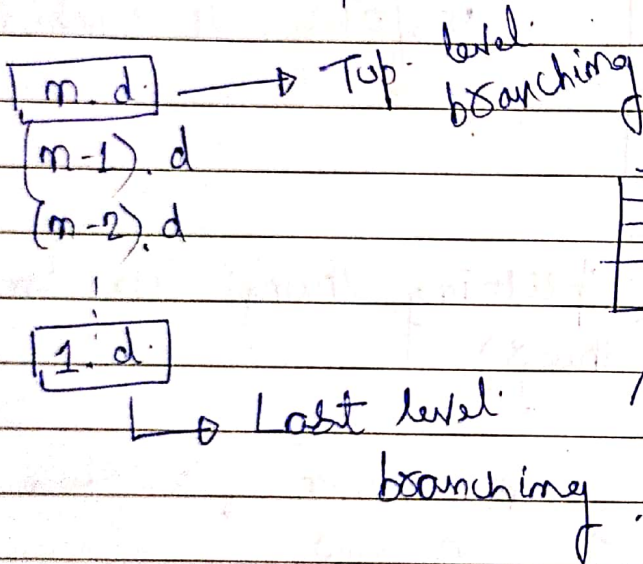 n.d. → Top level branching
(n-1).d
(n-2).d
1.d.
Last level branching